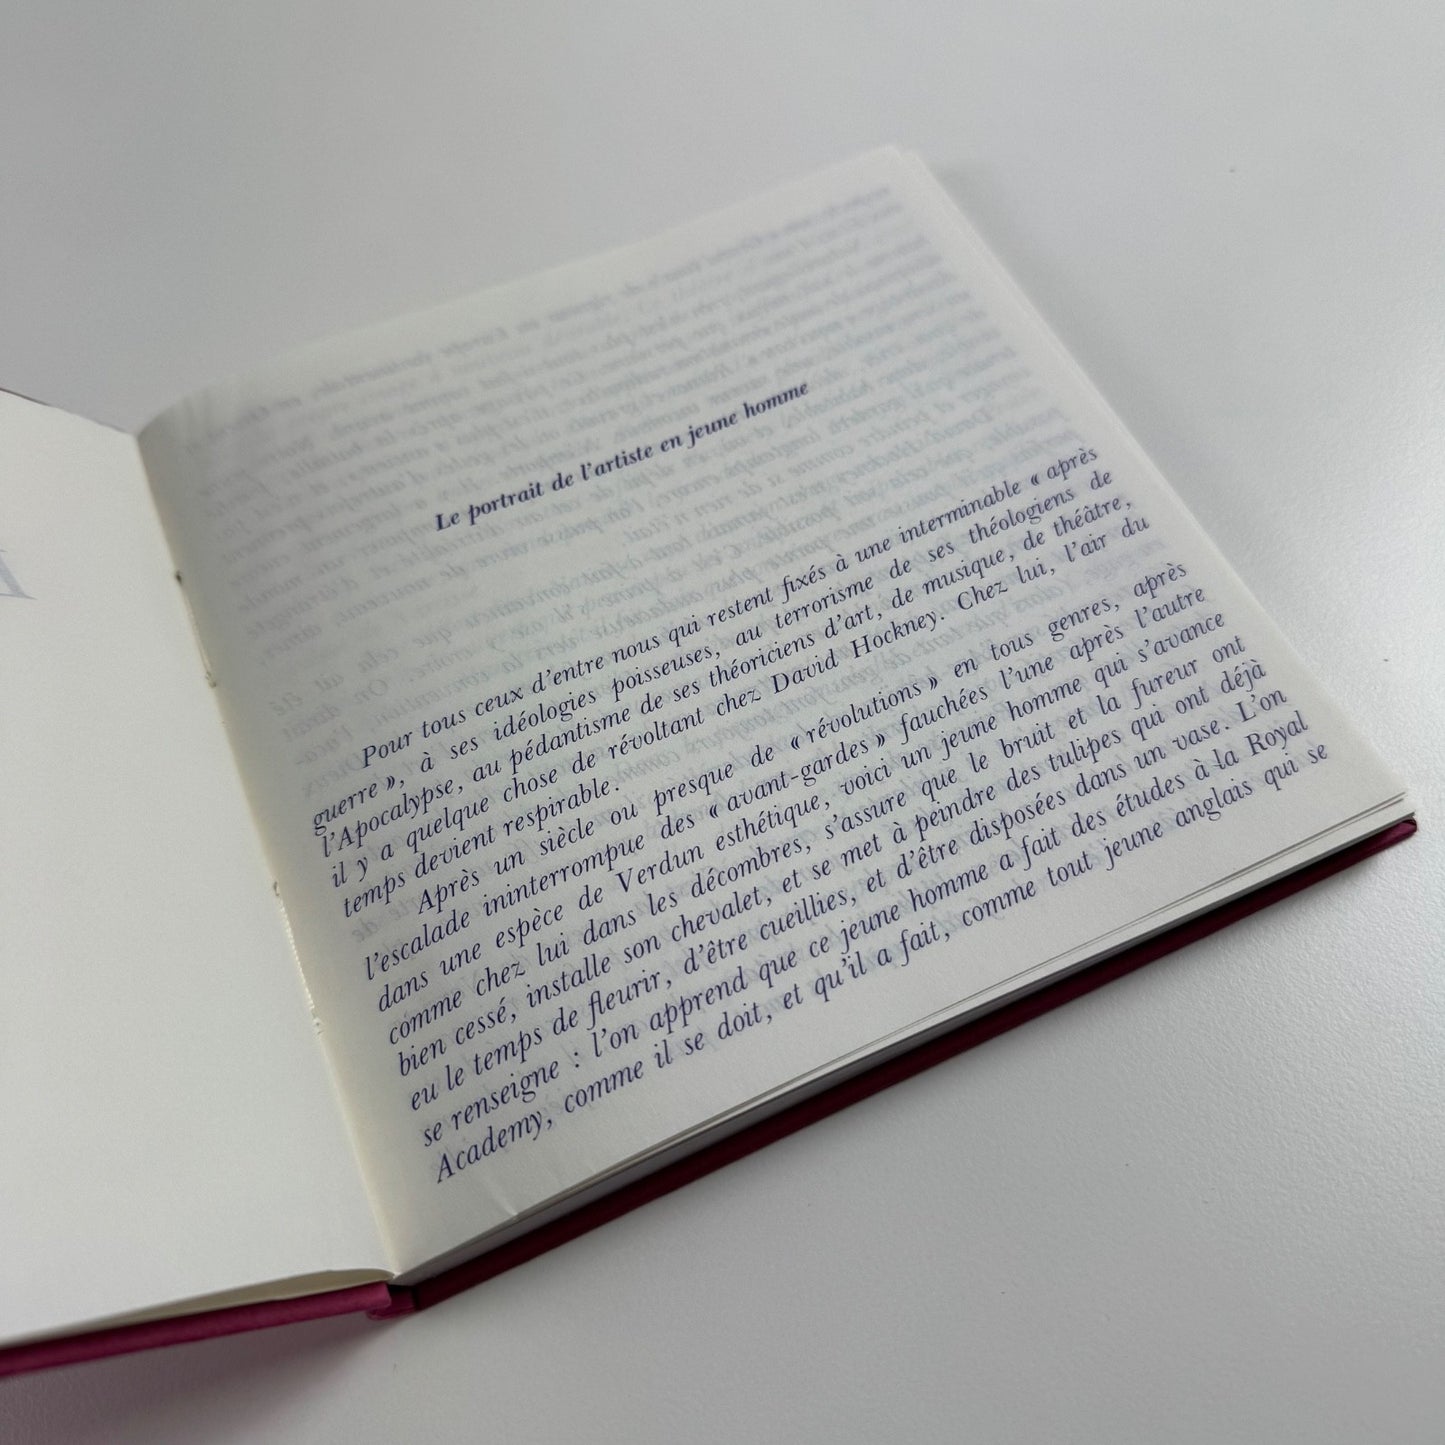 Le portrait de l'artiste en jeune homme
Pour tous ceux d'entre nous qui restent fixés à une interminable « après
guerre », à ses idéologies poisseuses, au terrorisme de ses théologiens de
l'Apocalypse, au pédantisme de ses théoriciens d'art, de musique, de théâtre,
il y a quelque chose de révoltant chez David Hockney. Chez lui, l'air du
temps devient respirable.
Après un siècle ou presque de « révolutions » en tous genres, après
l'escalade ininterrompue des « avant-gardes » fauchées l'une après l'autre
dans une espèce de Verdun esthétique, voici un jeune homme qui s'avance
comme chez lui dans les décombres, s'assure que le bruit et la fureur ont
bien cessé, installe son chevalet, et se met à peindre des tulipes qui ont déjà
eu le temps de fleurir, d'être cueillies, et d'être disposées dans un vase. L'on
se renseigne : l'on apprend que ce jeune homme a fait des études à la Royal
Academy, comme il se doit, et qu'il a fait, comme tout jeune anglais qui se